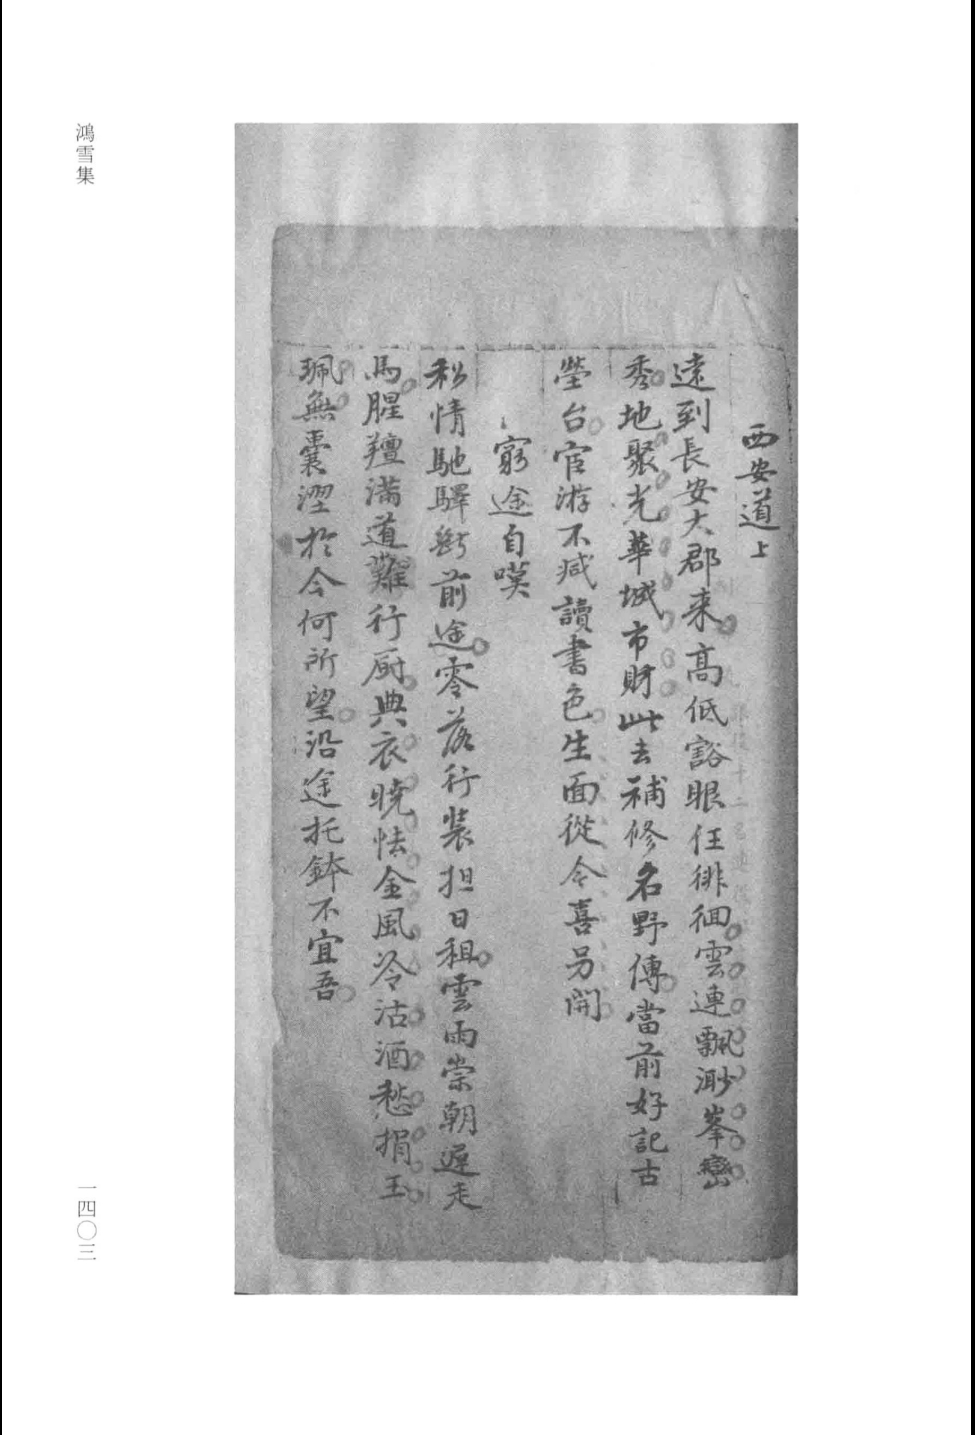 西安道上
遠到長安大郡来高低豁眼任徘徊雲連飄渺峯巒
秀地聚光華城市財此去補修名野傳當前好記古
瑩台宦游不减讀書色生面從今喜另開
窮途自嘆
私情馳驛断前途零落行裝担日租雲雨崇朝遲走
馬腥羶满道難行厨典衣曉怯金風冷沽酒愁捐玉
珮無囊澀於今何所望沿途托鉢不宜吾
鴻雪集
一四〇三